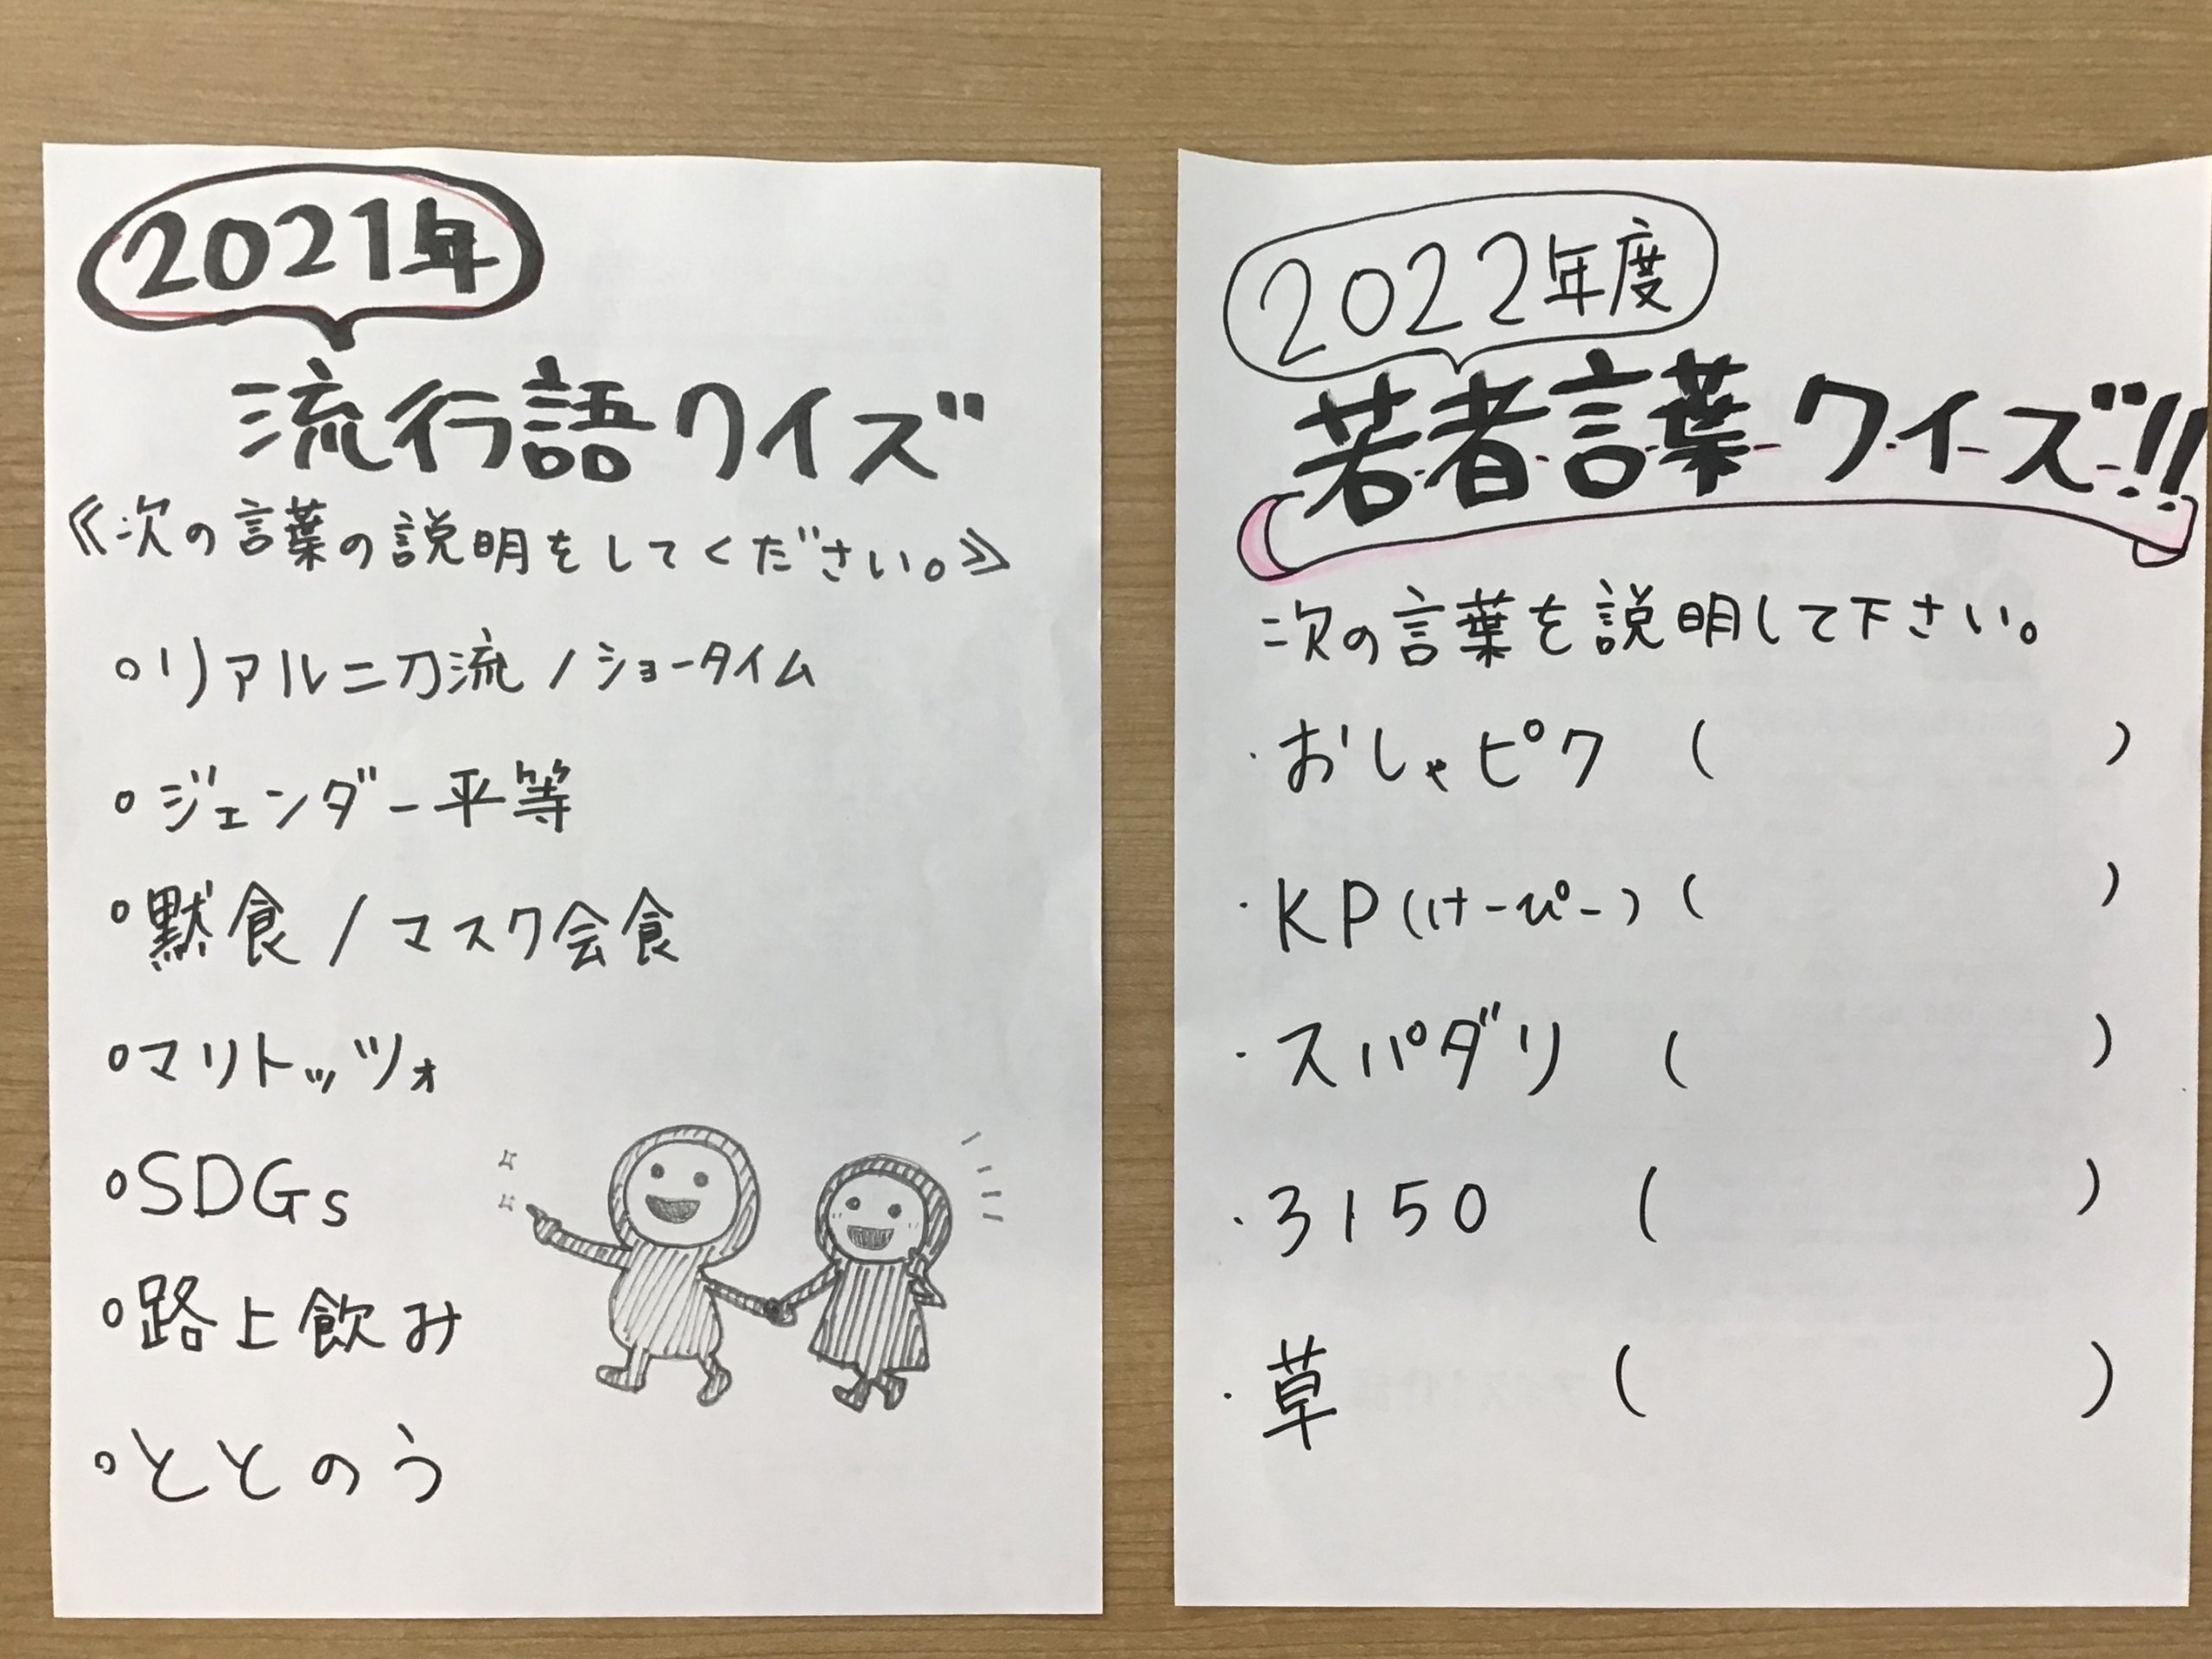 2021年
流行語クイズ
《次の言葉の説明をしてください。》
○リアル二刀流/ショータイム
○ジェンダー平等
○黙食/マスク会食
○マリトッツォ
○SDGs
○路上飲み
○ととのう
2022年度
若者言葉クイズ!!
次の言葉を説明して下さい。
・おしゃピク ( )
・KP(けーぴー) ( )
・スパダリ ( )
・3150 ( )
・草 ( )